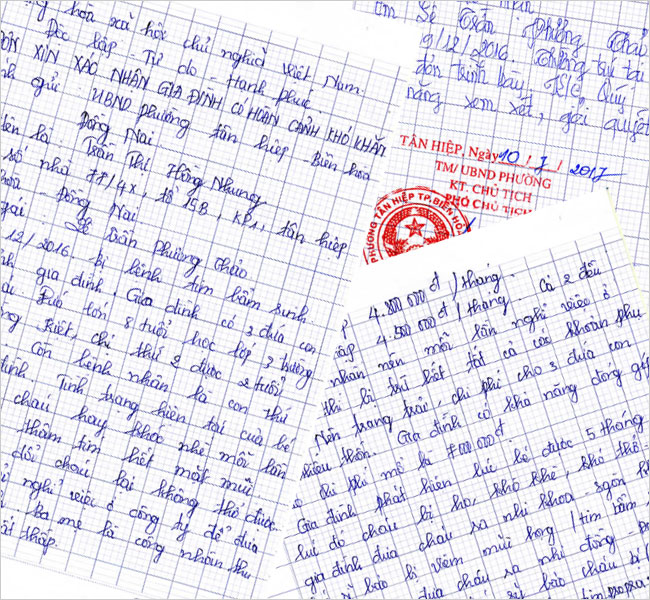 hòa xã hội chủ nghĩa Việt Nam.
Độc lập - Tự do - Hạnh phúc
XIN XÁC NHẬN GIA ĐÌNH CÓ HOÀN CẢNH KHÓ KHĂN
gửi : UBND phường tân hiệp - Biên hòa
Đồng Nai.
tên là : Trần Thị Hồng Nhung
số nhà 78/4x, tổ 15B, KP1, tân hiệp
- Đồng Nai
gái : Lê Trần Phương Thảo
12/2016. bị bệnh tim bẩm sinh
gia đình. Gia đình có 3 đứa con
Đứa lớn 8 tuổi học lớp 3 trường
Kiệt, chị thứ 2 được 2 tuổi
Còn bệnh nhân là con thứ
Tình trạng hiện tại của bé
cháu hay khóc nhè mỗi lần
thâm tím hết mặt mũi.
dỗi cháu lại không thở được
nghỉ việc ở công ty để đưa
ba mẹ là công nhân thu
thấp.
Lê Trần Phương Thảo
9/12/2016. Thường trú tại
đơn trình bày, Quý
năng xem xét, giải quyết
TÂN HIỆP, Ngày 10 / 7 / 2017
TM/ UBND PHƯỜNG
KT. CHỦ TỊCH
PHÓ CHỦ TỊCH
PHƯỜNG TÂN HIỆP TP.BIÊN HÒA
4.800 000đ /tháng.
4.500 000đ /tháng. Cả 2 đều
nhân nên mỗi lần nghỉ việc ở
thì bị trừ hết tất cả các khoản phụ
Nên trang trải, chi phí cho 3 đứa con
thiếu thốn. Gia đình có khả năng đóng góp
chi phí mổ là 7000 000đ
Gia đình phát hiện lúc bé được 5 tháng
lúc đó cháu bị ho, khò khè, khó thở.
gia đình đưa cháu ra nhi khoa - sgòn
bảo bị viêm mũi họng / tim bẩm
đưa cháu ra nhi đồng
bảo cháu bị